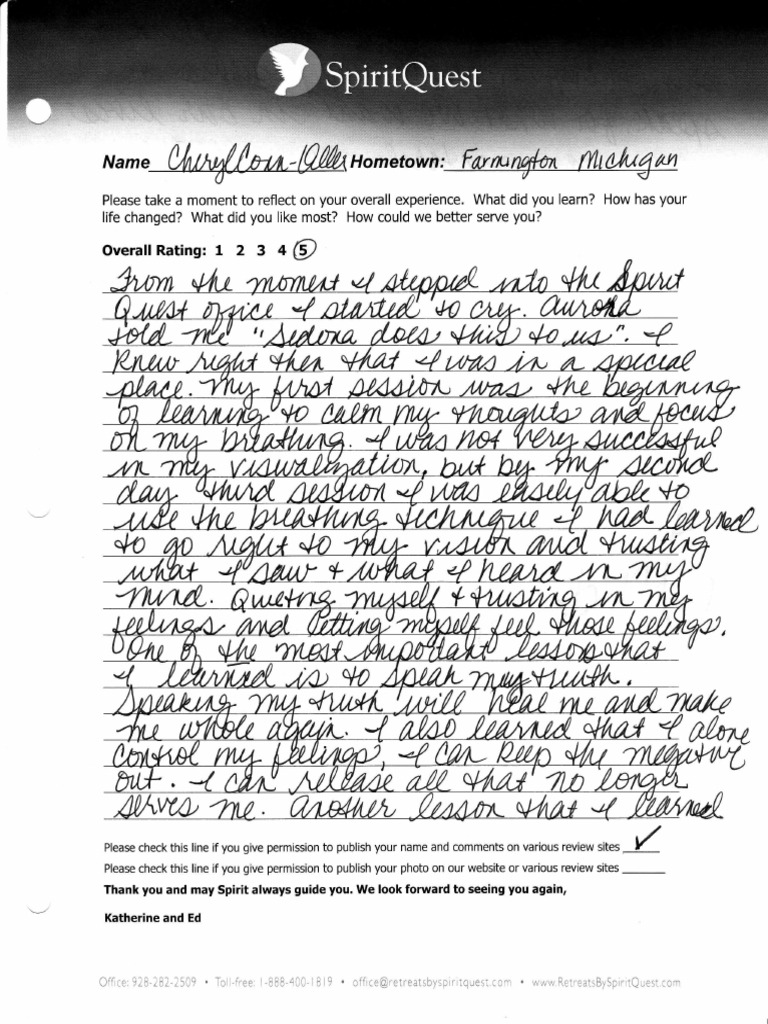 SpiritQuest
Name Cheryl Hometown: Farmington Michigan
Please take a moment to reflect on your overall experience. What did you learn? How has your
life changed? What did you like most? How could we better serve you?
Overall Rating: 1 2 3 4 5
From the moment I stepped into the Spirit
Quest office I started to cry. Aurora
told me "Sedona does this to us". I
knew right then that I was in a special
place. My first session was the beginning
of learning to calm my thoughts and focus
on my breathing. I was not very successful
in my visualization, but by my second
day third session I was easily able to
use the breathing technique I had learned
to go right to my vision and trusting
what I saw + what I heard in my
mind. Quieting myself + trusting in my
feelings and letting myself feel those feelings.
One of the most important lessons that
I learned is to speak my truth.
Speaking my truth will heal me and make
me whole again. I also learned that I alone
control my feelings, I can keep the negative
out. I can release all that no longer
serves me. Another lesson that I learned
Please check this line if you give permission to publish your name and comments on various review sites ✓
Please check this line if you give permission to publish your photo on our website or various review sites
Thank you and may Spirit always guide you. We look forward to seeing you again,
Katherine and Ed
Office: 928-282-2509 • Toll-free: 1-888-400-1819 • office@retreatsbyspiritquest.com • www.RetreatsBySpiritQuest.com